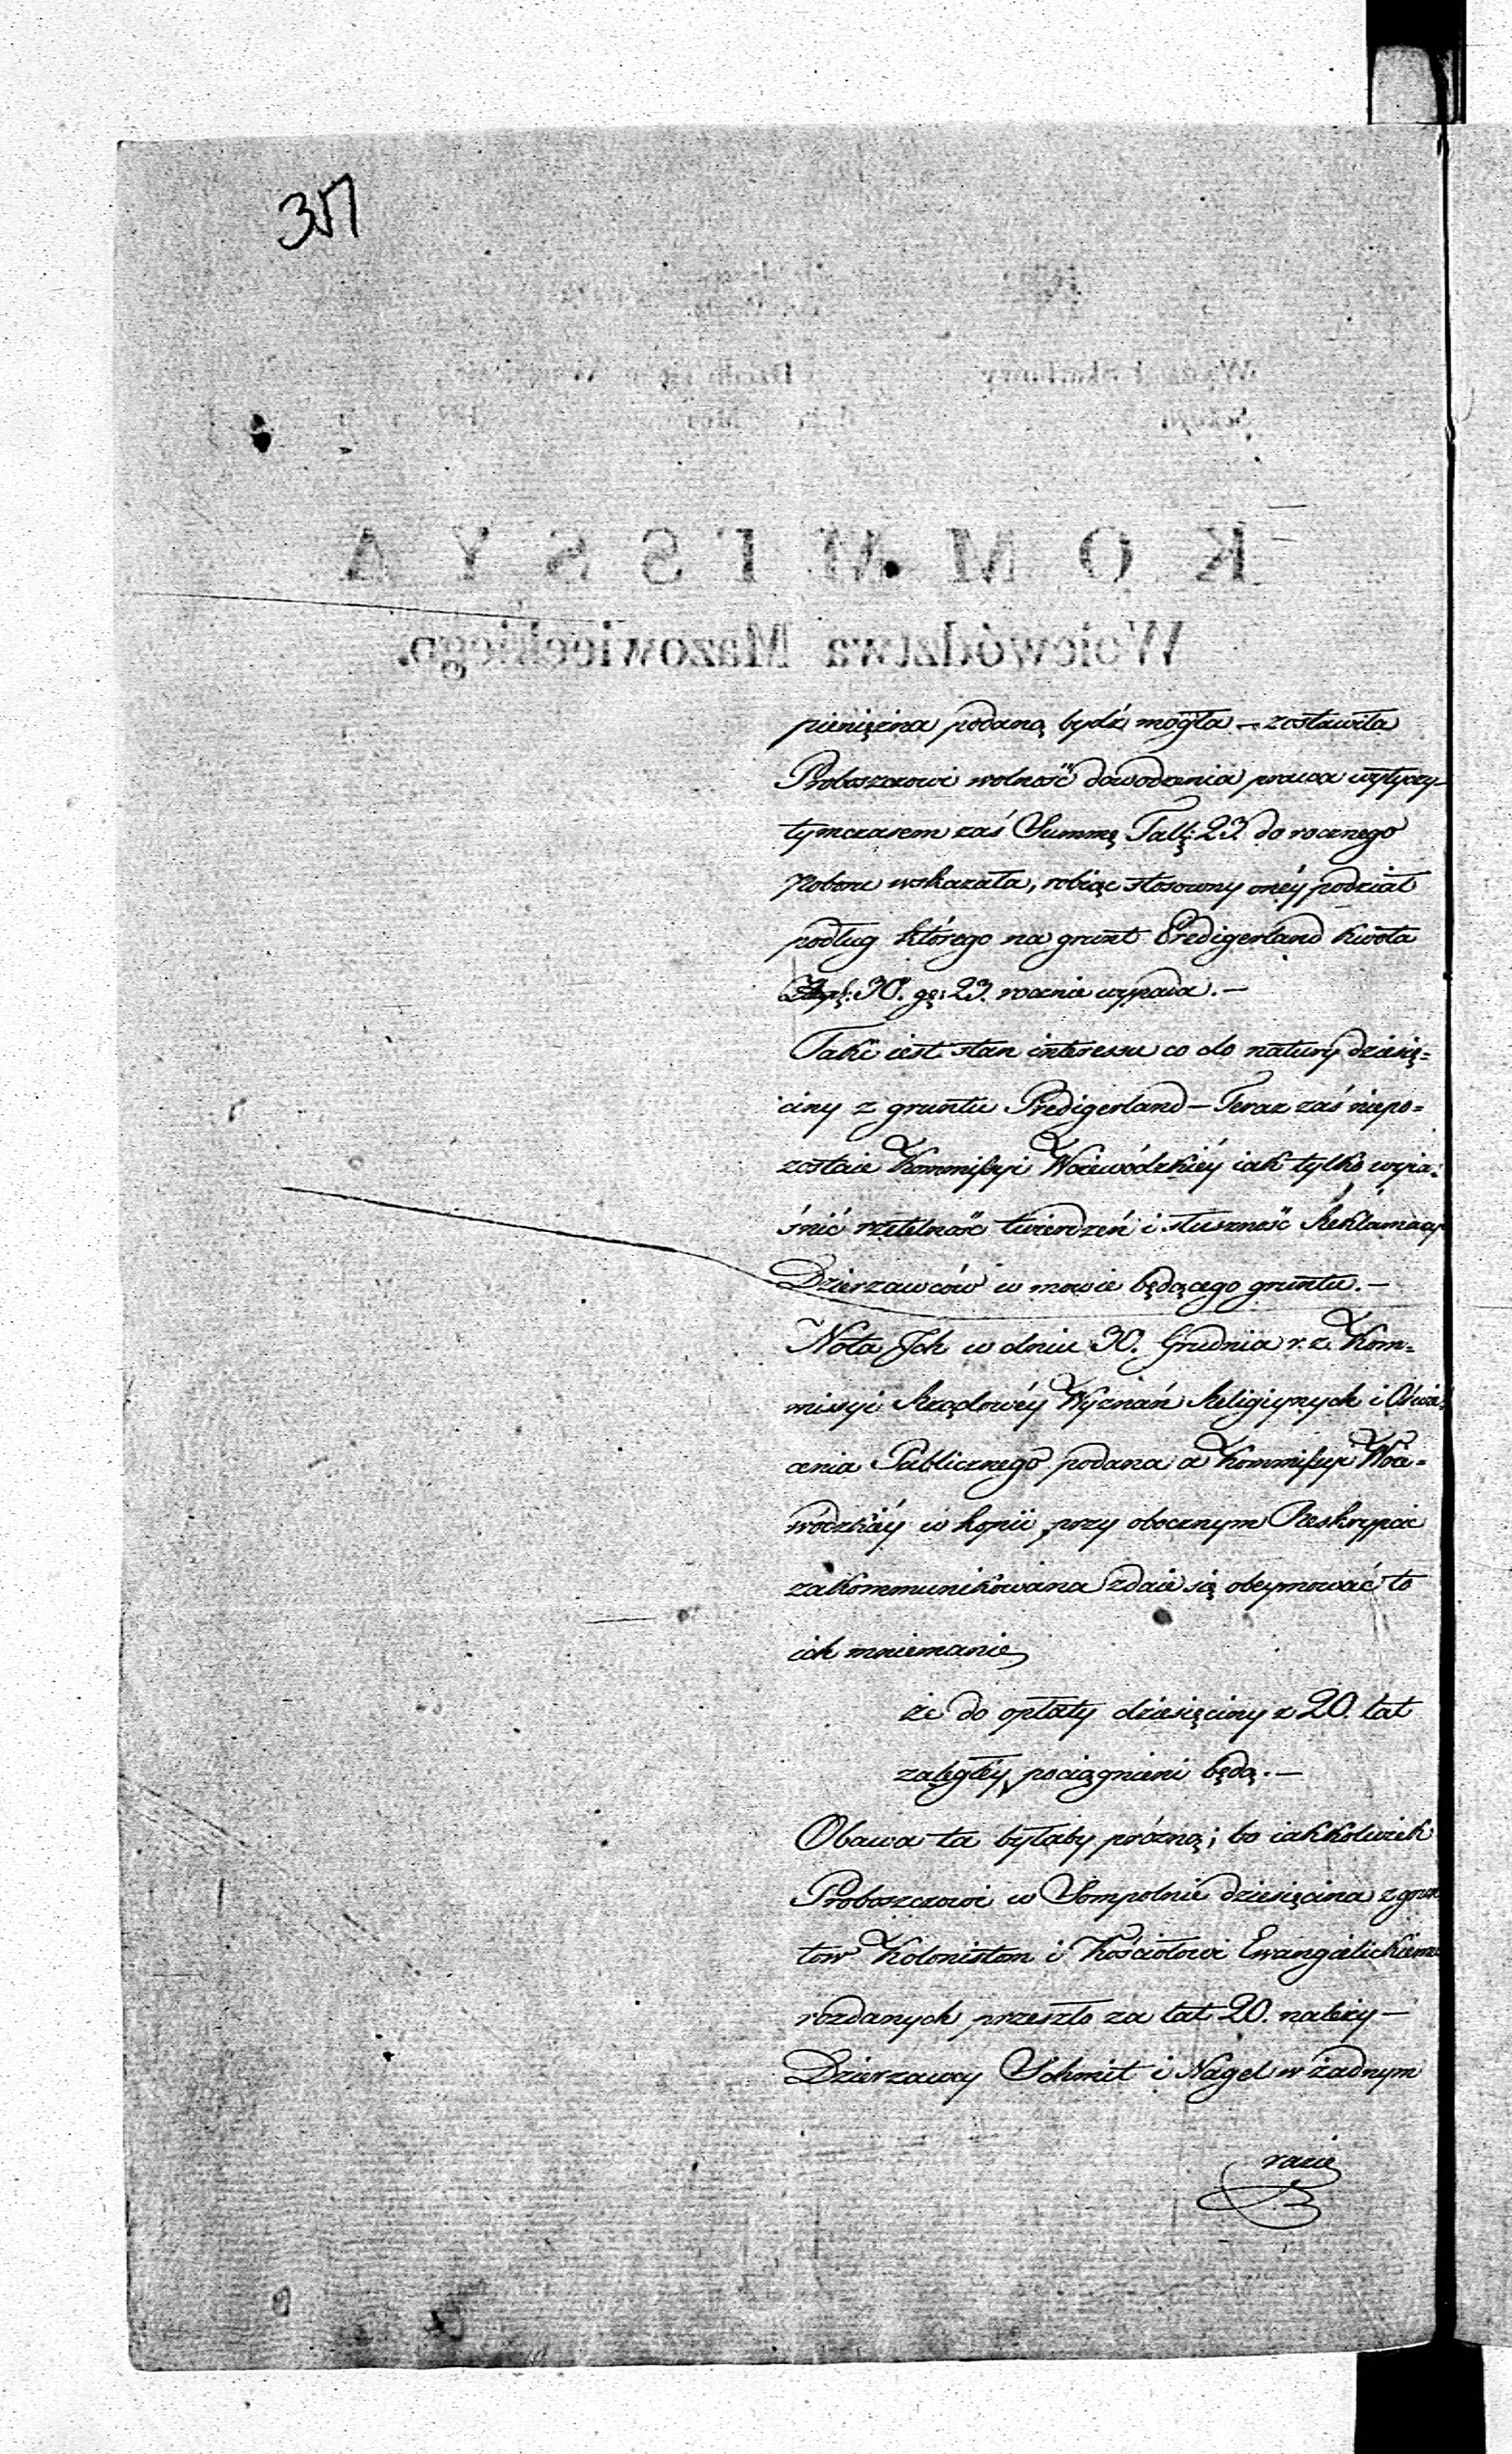 317
KOMMISSYA
Województwa Mazowieckiego.
pieniężna podaną bydź mogła – zostawiła
Proboszczowi wolność dowodzenia prawa wytycz-
tymczasem zaś Summę Tall: 23. do rocznego
Poboru wskazała, robiąc stosowny onéy podział
podług którego na grunt Predigerland kwota
Złp: 30. gr: 23. rocznie wypada. –
Taki iest stan interessu co do natury dziesię=
ciny z gruntu Predigerland – Teraz zaś niepo=
zostaie Kommissyi Woiewódzkiéy iak tylko wyia=
śnić rzetelność twierdzeń i słuszność Reklamacyi
Dzierzawców w mowie będącego gruntu. –
Nota Ich w dniu 30. Grudnia r. z. Kom=
missyi Rządowéy Wyznań Religiynych i Oświe=
cenia Publicznego podana a Kommissyi Woie=
wódzkiéy w kopii przy obocznym Reskrypcie
zakommunikowana zdaie się obeymować to
ich mniemanie,
że do opłaty dziesięciny z 20. lat
zaległéy pociągnieni będą. –
Obawa ta byłaby próżną; bo iakkolwiek
Proboszczowi w Sompolnie dziesięcina z grun
tów Kolonistom i Kościołowi Ewangielickiemu
rozdanych przeszło za lat 20. należy –
Dzierzawcy Schmit i Nagel w żadnym
razie